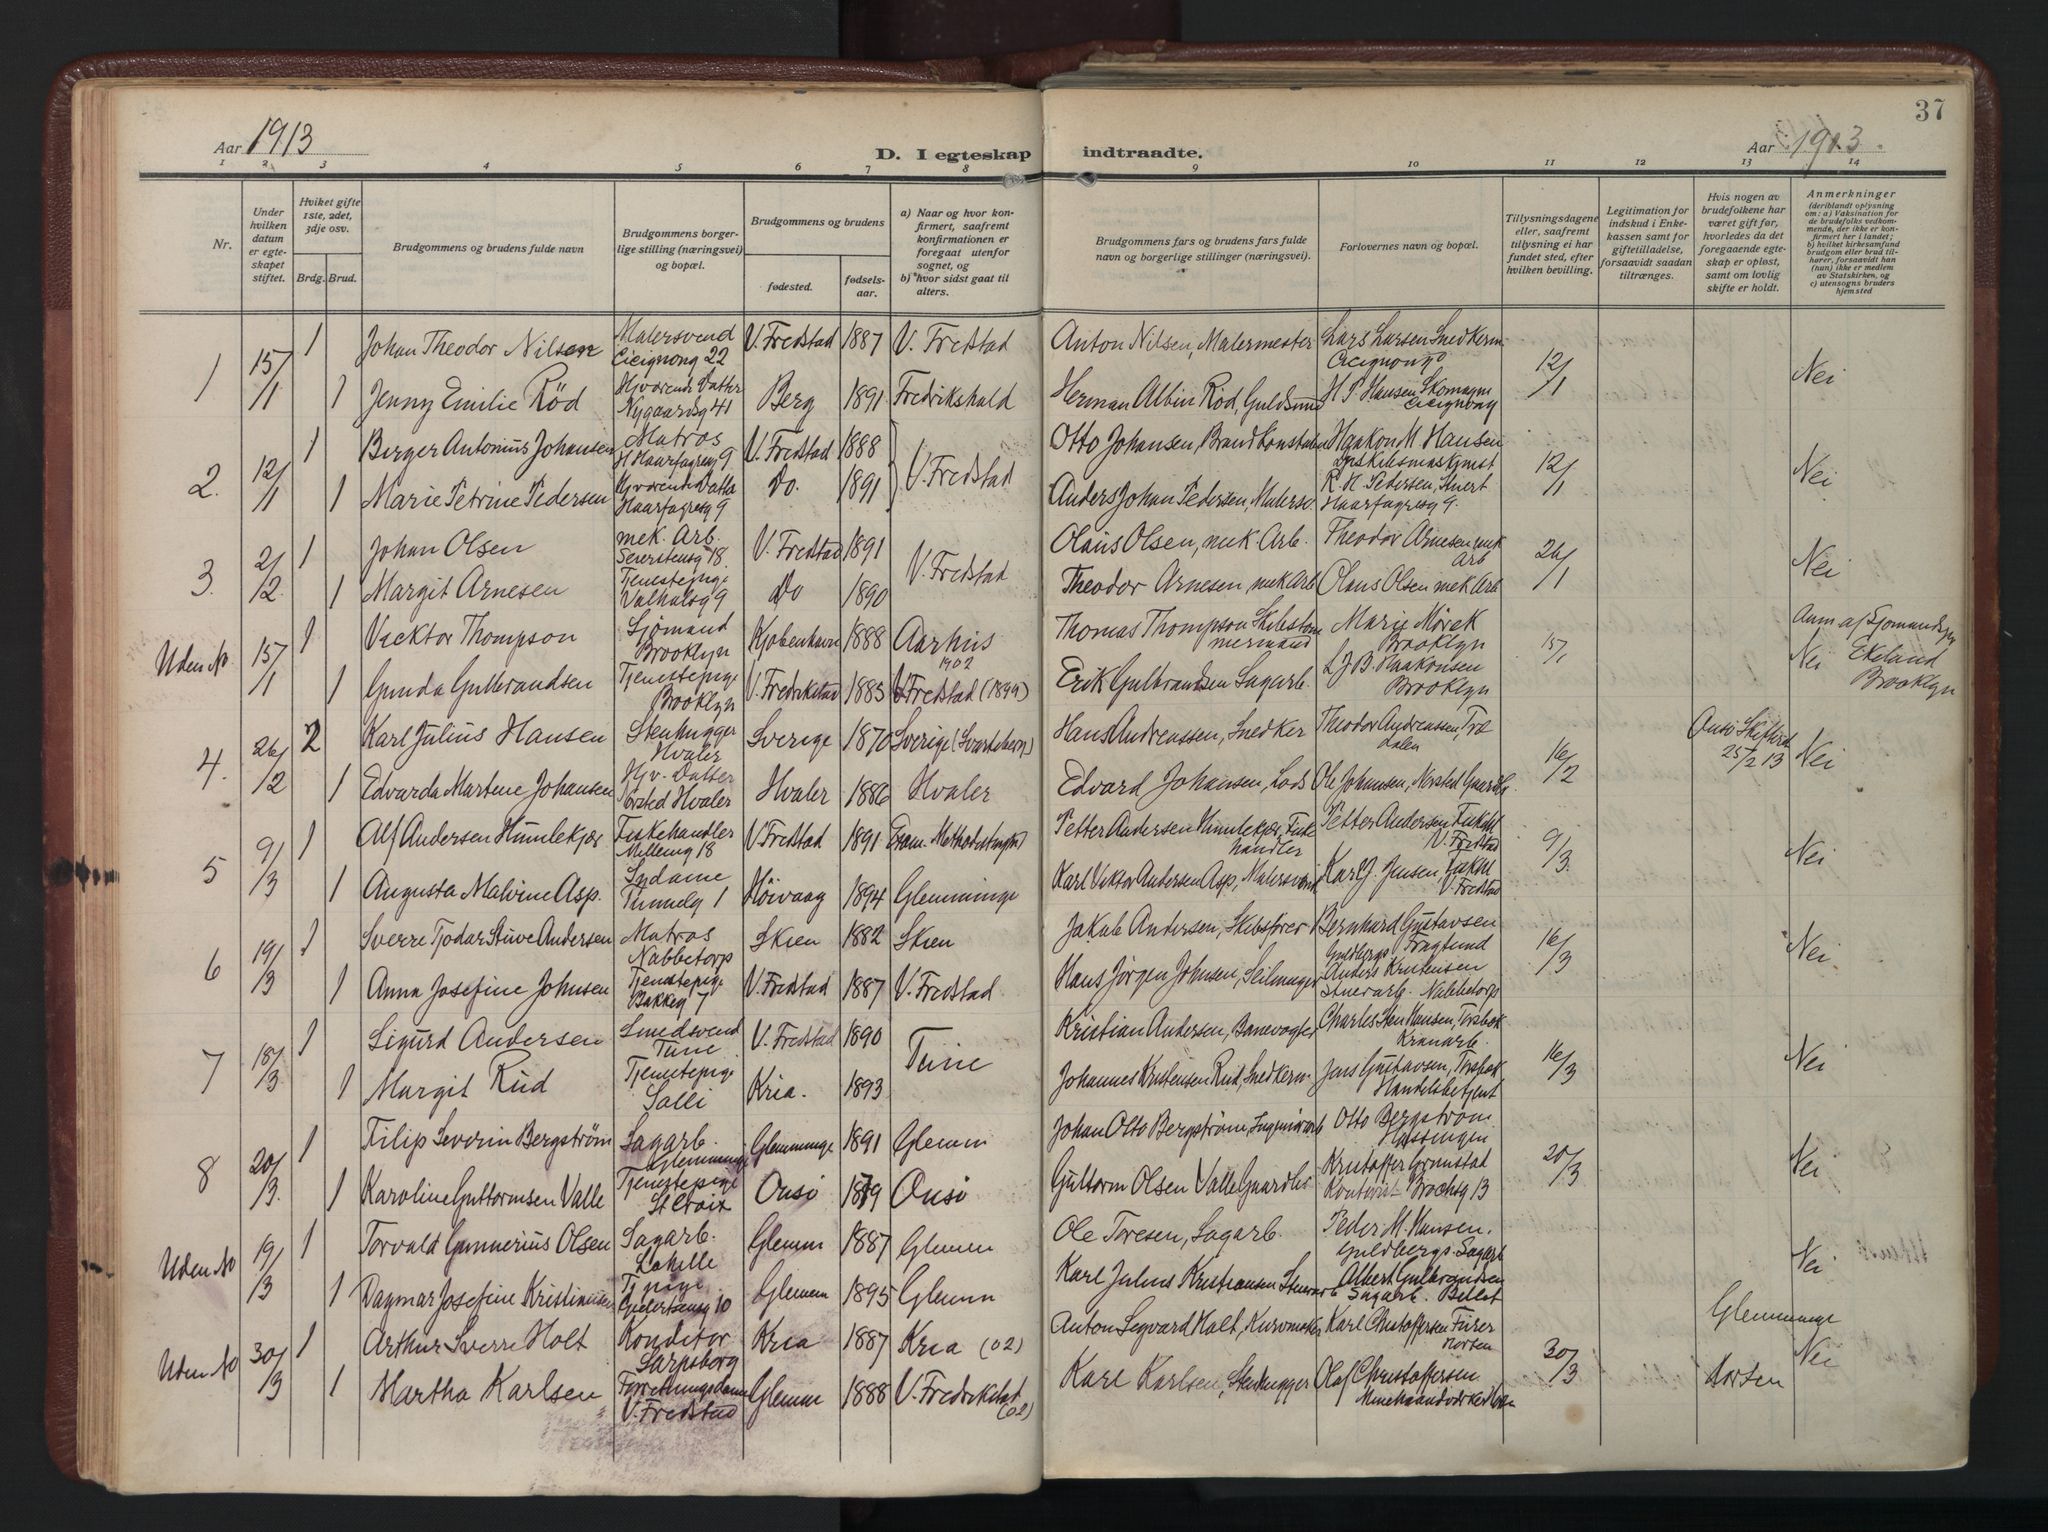 37
Aar 1913
D. I egteskap indtraadte.
Aar 1913
1 2 3 4 5 6 7 8 9 10 11 12 13 14
Nr.
Under hvilken datum er egteskapet stiftet.
Hviket gifte 1ste, 2det, 3dje osv.
Brdg. Brud.
Brudgommens og brudens fulde navn
Brudgommens borgerlige stilling (næringsvei) og bopæl.
Brudgommens og brudens
fødested.
fødselsaar.
a) Naar og hvor konfirmert, saafremt konfirmationen er foregaat utenfor sognet, og
b) hvor sidst gaat til alters.
Brudgommens fars og brudens fars fulde navn og borgerlige stillinger (næringsvei).
Forlovernes navn og bopæl.
Tillysningsdagene eller, saafremt tillysning ei har fundet sted, efter hvilken bevilling.
Legitimation for indskud i Enkekassen samt for giftetilladelse, forsaavidt saadan tiltrænges.
Hvis nogen av brudefolkene har været gift før, hvorledes da det foregaaende egteskap er opløst, samt om lovlig skifte er holdt.
Anmerkninger (deriblandt oplysning om: a) Vaksination for de brudefolks vedkommende, der ikke er konfirmert her i landet; b) hvilket kirkesamfund brudgom eller brud tilhører, forsaavidt han (hun) ikke er medlem av Statskirken, og c) utensogns bruders hjemsted
1 15/1 1 Johan Theodor Nilsen Malersvend Cicignong 22 V. Fredstad 1887 V. Fredstad Anton Nilsen, Malermester Lars Larsen Snedkerm Cicignong 12/1 Nei
1 Jenny Emilie Röd Hjværende Datter Nygaardsg 41 Berg 1891 Fredrikshald Herman Albin Röd, Guldsmed H P Hansen Skomagm Cicignong
2. 12/1 1 Birger Antonius Johansen Matros H Haarfagresg 9 V. Fredstad 1888 V. Fredstad Otto Johansen, Brandkonstabel Haakon M. Hansen 12/1 Nei
1 Marie Petrine Pedersen Hjværende Datter Haarfagresg 9 Do. 1891 Anders Johan Pedersen, Malersv. R. H. Pedersen, Haarfagresg 9.
3. 2/2 1 Johan Olsen mek. Arb. Seierstensg 18. V. Fredstad 1891 V. Fredstad Olaus Olsen, mek. Arb. Theodor Arnesen mek Arb 26/1 Nei
1 Margit Arnesen Tjenestepige Valhalsg 9 Do 1890 Theodor Arnesen, mek Arb Olaus Olsen mek Arb
Uden No 15/1 1 Vicktor Thompson Sjømand Brooklyn Kjøbenhavn 1888 Aarhus 1902 Thomas Thompson Skibstømmermand Marie Mörck Brooklyn 15/1 Anm af Sjomandspr Ekeland Brooklyn
1 Gunda Gulbrandsen Tjenestepige Brooklyn V. Fredrikstad 1885 V Fredstad (1899) Erik Gulbrandsen Sagarb. L J B. Haakonsen Brooklyn Nei
4. 26/2 2 Karl Julius Hansen Stenhugger Hvaler Sverige 1870 Sverige (Svarteborg) Hans Andreassen, Snedker Theodor Andreassen, Trædalen 16/2 Onsö Skifteret 25/2 13 Nei
1 Edvarda Martene Johansen Hjv. Datter Nörsted Hvaler Hvaler 1886 Hvaler Edvard Johansen, Lods Ole Johansen, Norsted Gaardbr.
5 9/3 1 Alf Andersen Humlekjær Fiskehandler Melleng 18 V Fredstad 1891 Petter Andersen Humlekjær, Fiskehandler Petter Andersen Fiskehl V. Fredstad 9/3. Nei
1 Augusta Malvine Asp. Sydame Tunnelg 1 Höivaag 1894 Glemminge Karl Viktor Andersen Asp, Malersvend Karl J. Jensen, Fiskehl V. Fredstad
6 19/3 1 Sverre Tjodar Stuve Andersen Matros Nabbetorp Skien 1882 Skien Jakob Andersen, Skibsförer Bernhard Gustavsen Guldbergs 16/3 Nei
1 Anna Josefine Johnsen Tjenestepige Bakkeg 7 V. Fredstad 1887 V. Fredstad Hans Jörgen Johnsen, Seilmager Anders Kristensen Stuerarb. Nabbetorp
7 18/3 1 Sigurd Andersen Smedsvend Tune V. Fredstad 1890 Tune Kristian Andersen, Banevogter Charles Hansen, Torsbek Kranarb. 16/3 Nei
1 Margit Rud Tjenestepige Solli Kria. 1893 Johannes Kristensen Rud, Snedkerm. Jens Gustavsen, Torsbek Handelsbetjent
8 20/3. 1 Filip Severin Bergström Sagarb. Glemminge Glemminge 1891 Glemm Johan Otto Bergström, Otto Bergström Hassingen 20/3 Nei
1 Karoline Guttormsen Valle Tjenestepige St Croix Onsö 1889 Onsö Guttorm Olsen Valle Gaardbr Kristoffer Grimstad Kontorist Brochsg 13
Uden No 19/3 1 Torvald Gunnerius Olsen Sagarb. Lahelle Glemm 1887 Glemm Ole Toresen, Sagarb. Peder M. Hansen. Guldbergs. Sagarb Nei
1 Dagmar Josefine Kristiansen Tj pige 10 Glemm 1895 Glemm Karl Julius Kristiansen Stuerarb Albert Gulbrandsen Sagarb.
Uden No 30/3 1 Arthur Sverre Holt Konditor Sarpsborg Kria 1887 Kria (02) Anton Segvard Holt, Kurvmaker Karl Christoffersen Fürer Horten 30/3 Glemminge Nei
1 Martha Karlsen Forretningsdame V. Fredstad Glemm 1888 V. Fredrikstad (02) Karl Karlsen, Stenhugger Olaf Christoffersen Horten